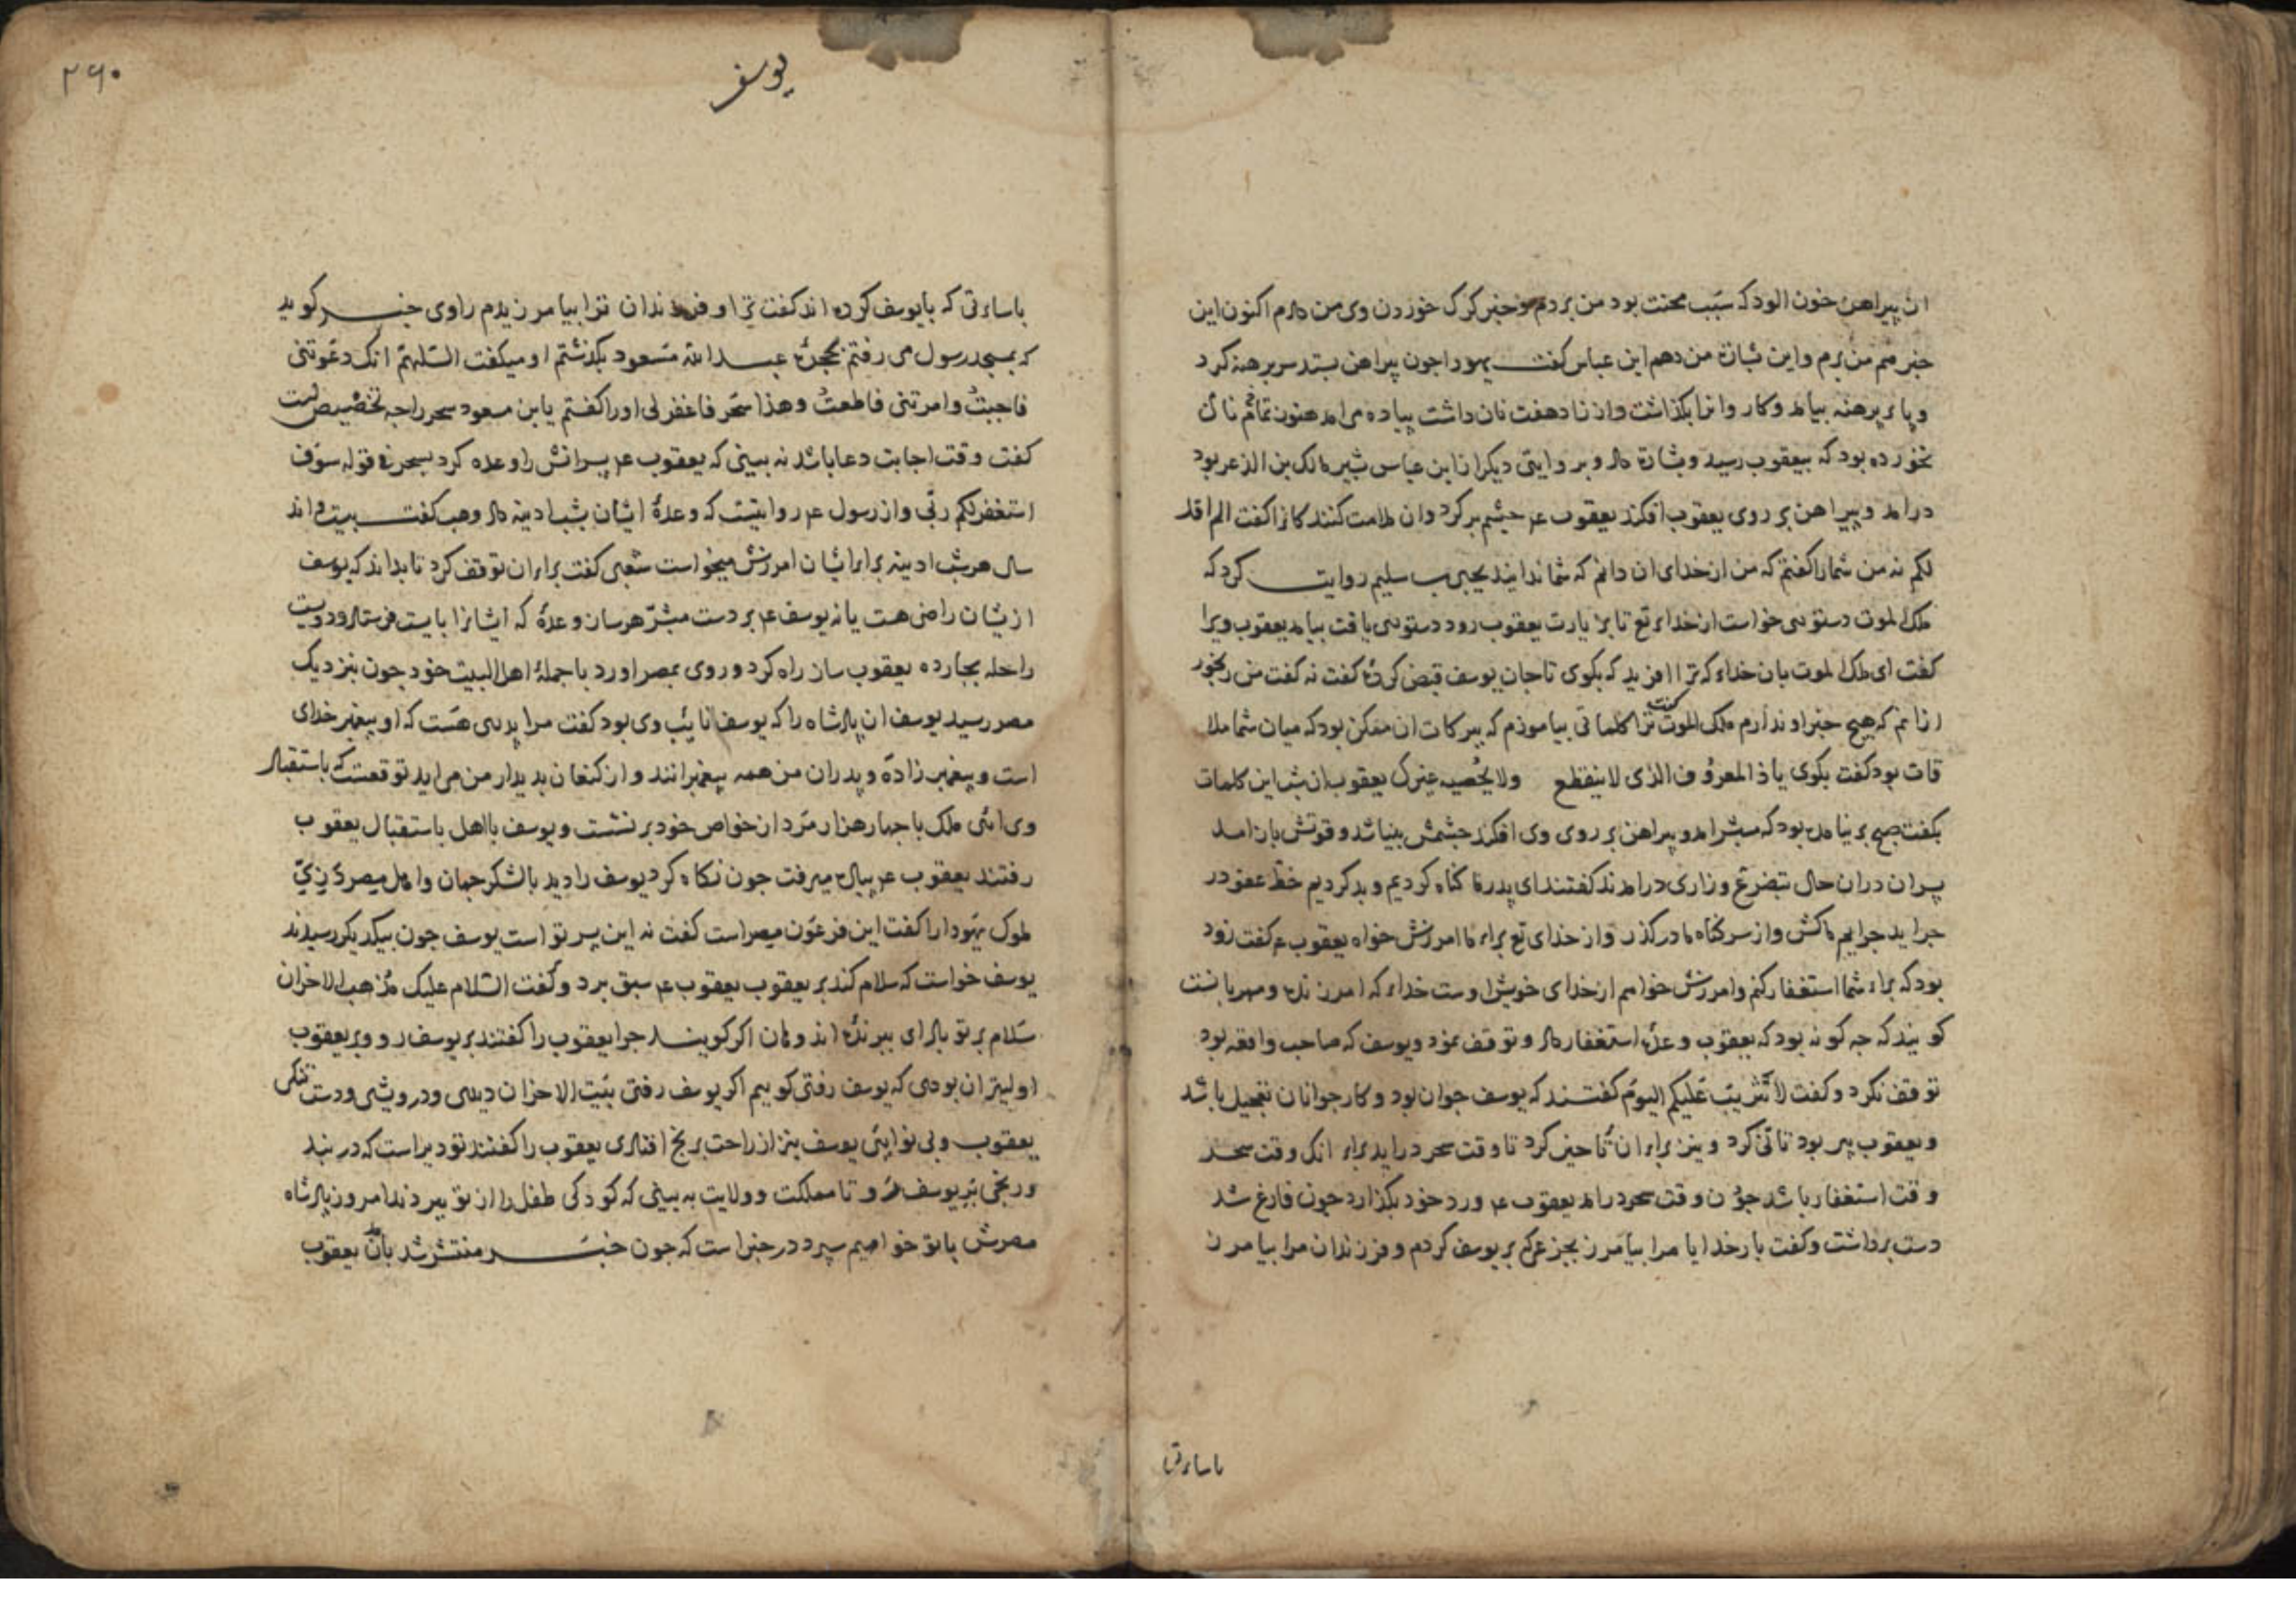 ان پیراهن خون الود که سَبب محنت بود من بردم و خبر کرک خوردن وی من دادم اکنون این
خبر هم من برم و این بشارة من دهم ابن عباس کفت یهودا جون پیراهن بستد سر برهنه کرد
و پا برهنه بیامد و کاروانرا بکذاشت و از زاد هفت نان داشت پیاده می امد هنوز تمام نان
نخورده بود که بیعقوب رسید و بشارة داد و بر وایتی دیکر از ابن عباس بشیر مالک بن الذعر بود
درامد و پیراهن بر روی یعقوب افکند یعقوب عم جشم بر کرد وان ملامت کنندکانرا کفت الم اقل
لکم نه من شمارا کفتم که من از خدای ان دانم که شما ندانید یحیی بن سلیم روایت کرد که
ملک الموت دستوری خواست از خدای تع تا بزیارت یعقوب رود دستوری یافت بیامد یعقوب ویرا
کفت ای ملک الموت بان خدای که ترا افرید که بکوی تا جان یوسف قبض کردهٔ کفت نه کفت من رنجور
ازانم که هیج خبر او ندارم ملک الموت کفت ترا کلماتی بیاموزم که ببرکات ان ممکن بود که میان شما ملا
قات بود کفت بکوی یاذ المعرُوف الذی لا ینقطع ولا یُحصیه غیرک یعقوب ان شب این کلمات
بکفت صبح بر نیامده بود که مبشر امد و پیراهن بر روی وی افکند جشمش بینا شد و قوتش باز امد
پسران دران حال بتضرّع و زاری درامدند کفتند ای پدر ما کناه کردیم و بد کردیم خطّ عفو در
جراید جرایم ما کش و از سر کناه ما درکذر و از خدای تع برای ما امرزش خواه یعقوب عم کفت زود
بود که برای شما استغفار کنم و امرزش خواهم از خدای خویش اوست خدای که امرزنده و مهربانست
کویند که جه کونه بود که یعقوب وعدهٔ استغفار داد و توقف نمود و یوسف که صاحب واقعه بود
توقف نکرد و کفت لا تَثریبَ عَلیکم الیومَ کفتند که یوسف جوان بود و کار جوانان بتعجیل باشد
و یعقوب پیر بود تانّی کرد و نیز برای ان تاخیر کرد تا وقت سحر دراید برای انک وقت سحر
وقت استغفار باشد جوُن وقت سحر درامد یعقوب عم ورد خود بکذارد جون فارغ شد
دست برداشت و کفت بار خدایا مرا بیامرز بجزعی که بر یوسف کردم و فرزندان مرا بیامرز
باساءتی
۲۶۰
یوسف
باساءتی که با یوسف کرده اند کفت ترا و فرزندان ترا بیامرزیدم راوی خبر کوید
که بمسجد رسول می رفتم بحجرهٔ عبد الله مَسعود بکذشتم او میکفت اللّهمّ انک دعَوتنی
فاجبتُ وامرتنی فاطعتُ وهذا سحَر فاغفر لی اورا کفتم یابن مسعود سحر راجه تخصیص است
کفت وقت اجابت دعا باشد نه بینی که یعقوب عم پسرانش را وعده کرد بسحر فی قوله سوَف
استغفر لکم ربّی و از رسول عم روایتست که وعدهٔ ایشان بشب ادینه داد وهب کفت بیست و اند
سال هر شب ادینه برای ایشان امرزش میخواست شعبی کفت برای ان توقف کرد تا بداند که یوسف
ازیشان راضی هست یا نه یوسف عم بر دست مبشّر هر ساز و عدهٔ که ایشانرا بایست فرستاد و دویست
راحله بجارده یعقوب ساز راه کرد و روی بمصر اورد با جملهٔ اهل البیت خود جون بنزدیک
مصر رسید یوسف ان پادشاه را که یوسف نایَب وی بود کفت مرا پدری هَست که او پیغمبر خدای
است و پیغمبر زادهَ و پدران من همه پیغمبرانند و از کنعان بدیدار من می اید توقعست که باستقبال
وی ائی ملک با جهار هزار مَرد از خواص خود بر نشست و یوسف با اهل باستقبال یعقوب
رفتند یعقوب عم پیاده میرفت جون نکاه کرد یوسف را دید با لشکر جهان و اهل مصر در زیّ
ملوک یَهودا را کفت این فرعَون مصر است کفت نه این پسر تو است یوسف جون بیکدیکر رسیدند
یوسف خواست که سلام کند بر یعقوب یعقوب عم سبق برد و کفت السّلام علیک مُذهب الاحزان
سَلام بر تو باد ای برندهٔ اندوهان اکر کویند جرا یعقوب را کفتند بر یوسف رو و بر یعقوب
اولیتر ان بودی که یوسف رفتی کوییم اکر یوسف رفتی بَیت الاحزان دیدی و درویشی و دست تنکی
یعقوب و بی نوایَی یوسف نیز از راحت برنج افتادی یعقوب را کفتند تو دیر است که در بند
و رنجی بَرِ یوسف رَو تا مملکت و ولایت به بینی که کودکی طفل را از تو ببردند امروز پادشاه
مصرش باتو خواهیم سپرد در خبر است که جون خبَر منتشر شد بانک یعقوب